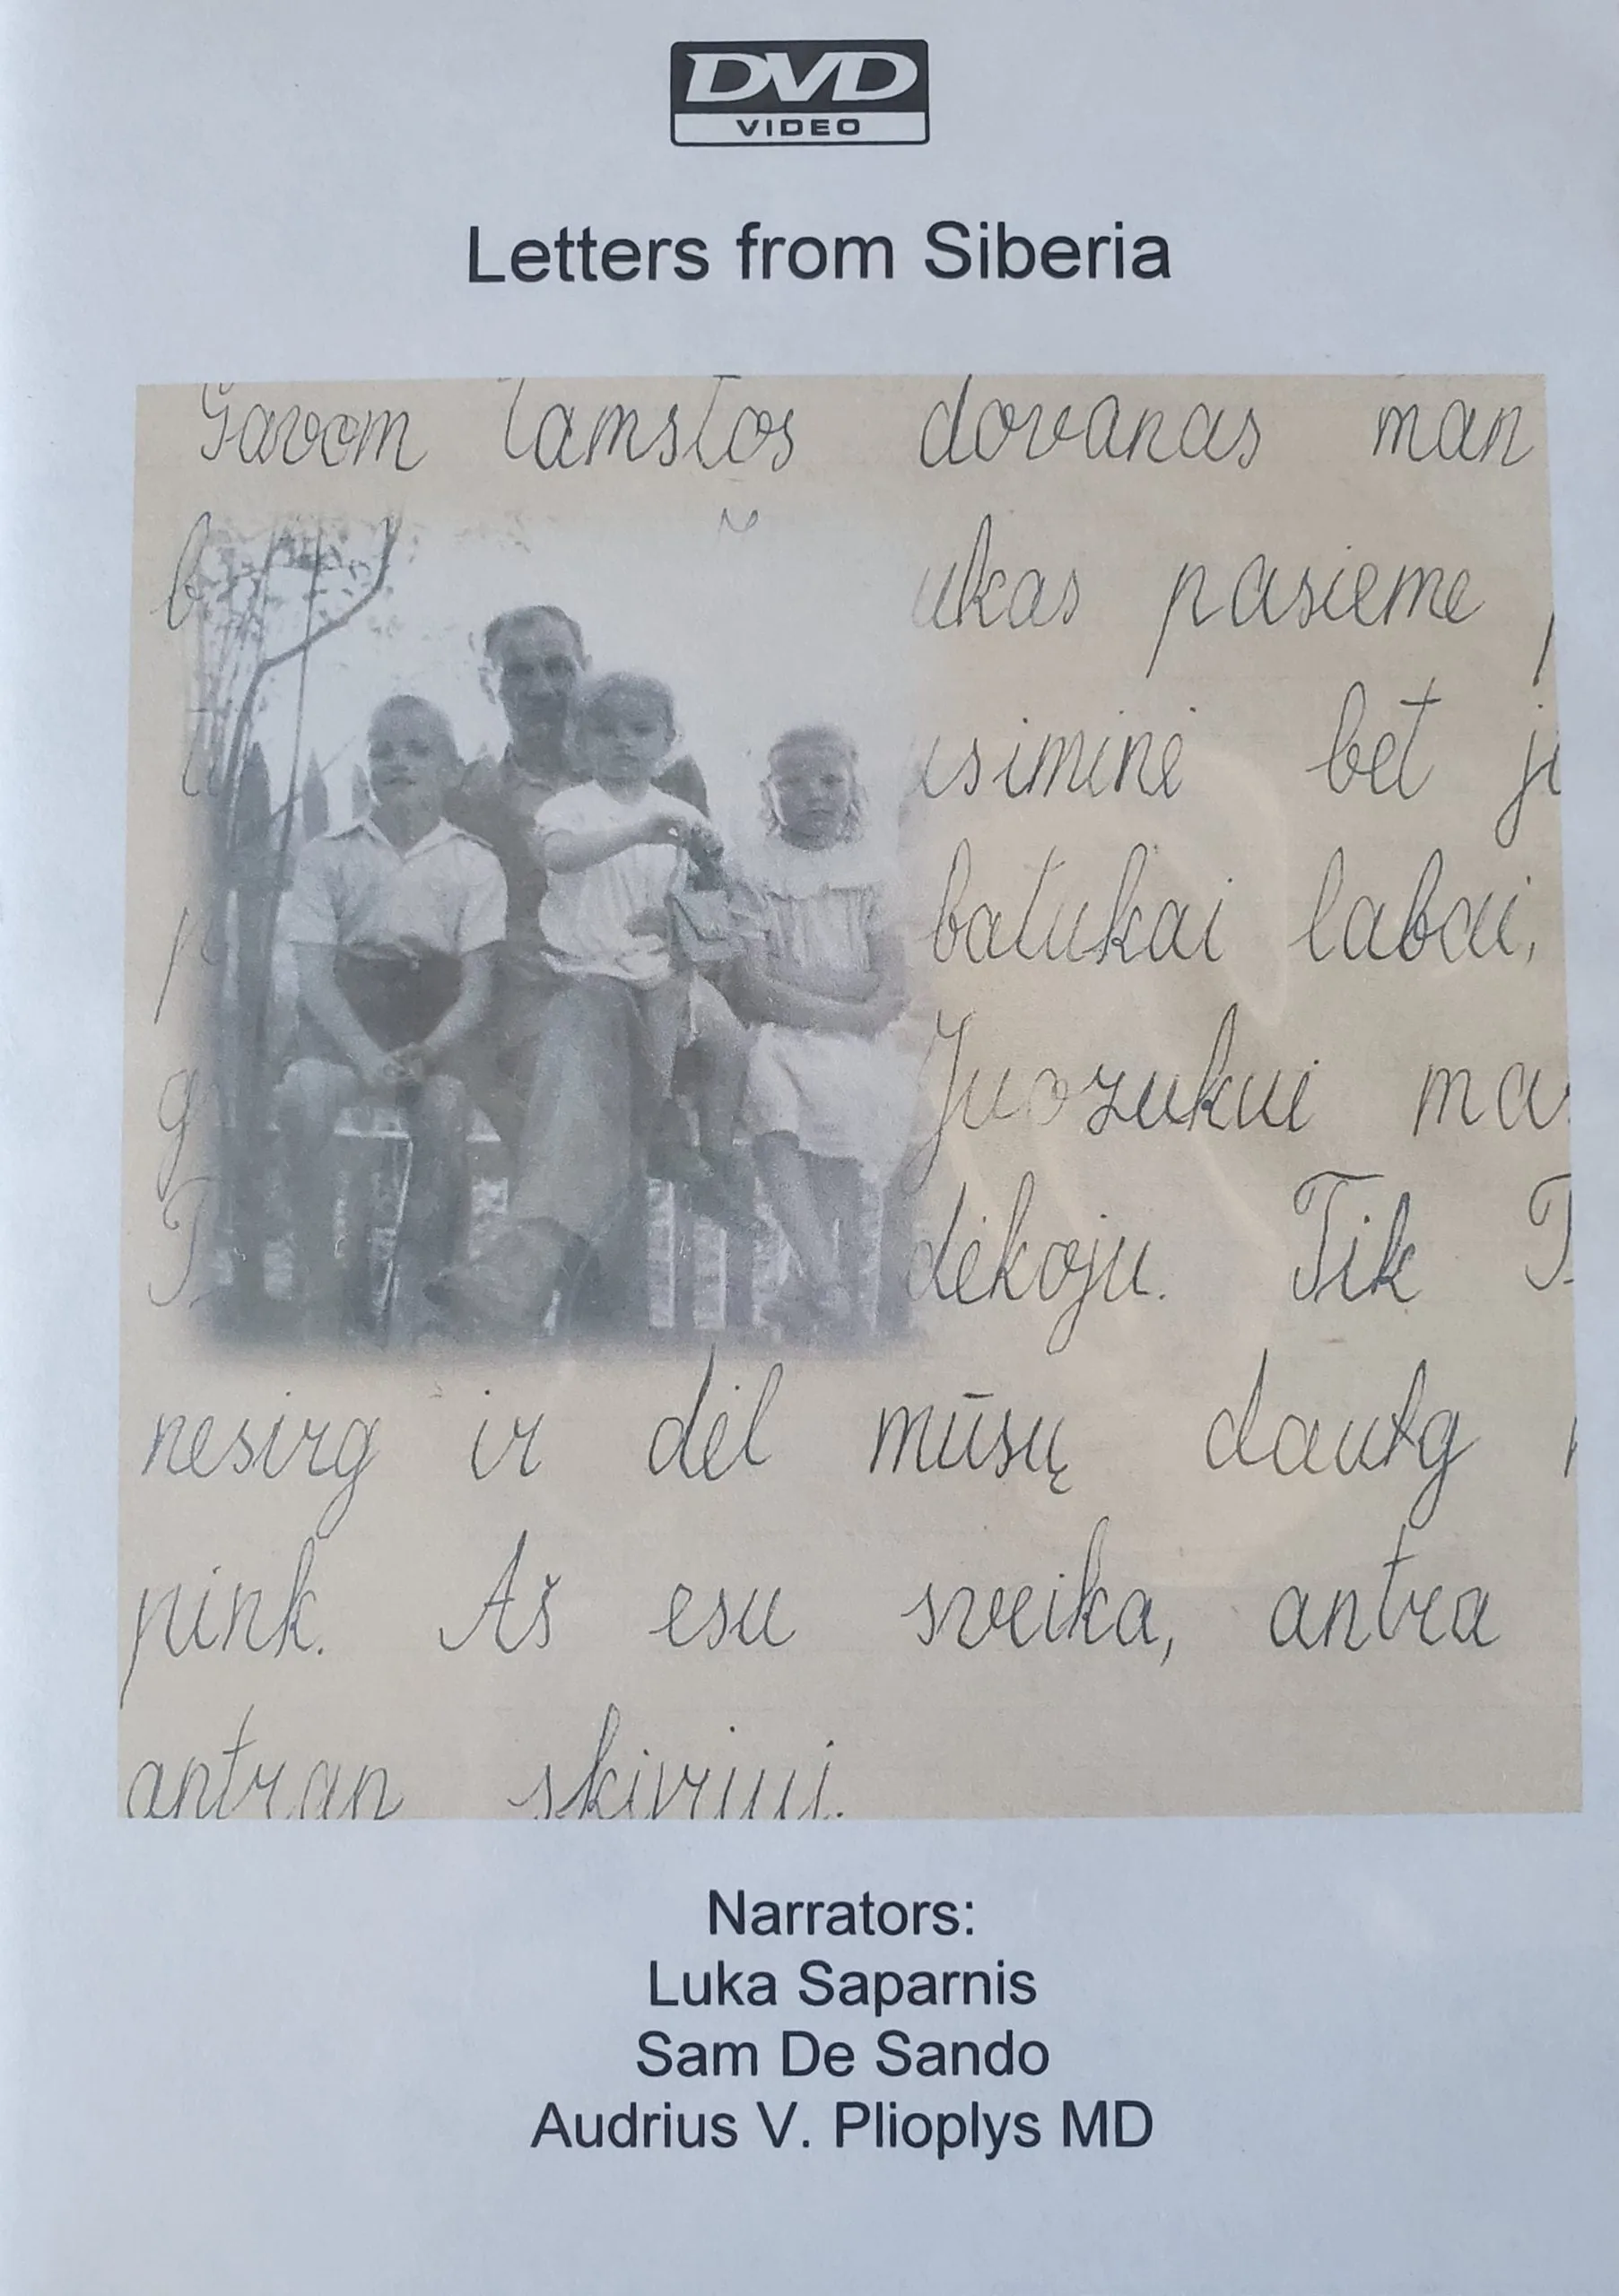 DVD
VIDEO
Letters from Siberia
Gavom tamstos dovanas man
ukas pasieme
isiminė bet
batukai labai,
Juozukui
dėkoju. Tik
nesirg ir dėl mūsų
pink. Aš esu sveika, antra
antran
Narrators:
Luka Saparnis
Sam De Sando
Audrius V. Plioplys MD